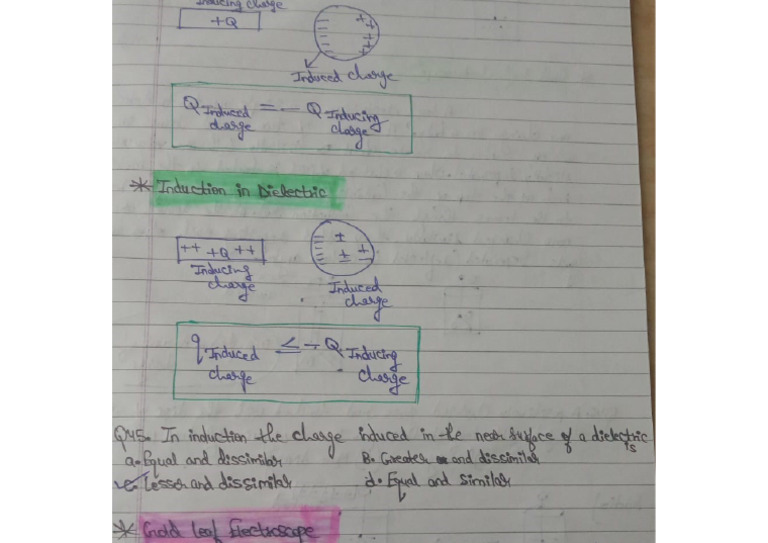 Inducing charge
+Q
Induced charge
Q Induced charge = - Q Inducing charge
* Induction in Dielectric
++ +Q ++
Inducing charge
Induced charge
q Induced charge ≤ - Q Inducing charge
Q45. In induction the charge induced in the near surface of a dielectric is
a. Equal and dissimilar B. Greater and dissimilar
c. Lesser and dissimilar d. Equal and similar
* Gold leaf Electroscope